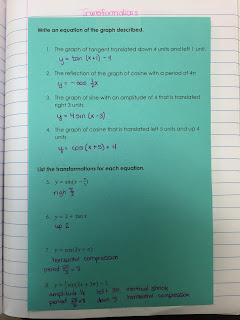 Transformations
Write an equation of the graph described.
1. The graph of tangent translated down 4 units and left 1 unit.
y = tan (x+1) - 4
2. The reflection of the graph of cosine with a period of 4π
y = -cos ½x
3. The graph of sine with an amplitude of 4 that is translated
right 3 units
y = 4 sin (x-3)
4. The graph of cosine that is translated left 5 units and up 4
units
y = cos (x+5) + 4
List the transformations for each equation.
5. y =
right
6. y = 2 + tan x
up 2
7. y =
horizontal compression
period
8. y =
amplitude left vertical shrink
period down horizontal compression